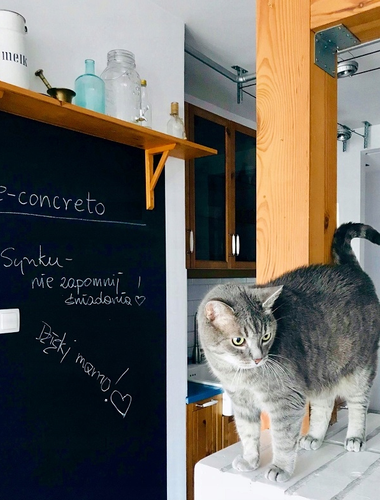 melk
e-concreto
Synku-
nie zapomnij!
śniadania♡
Dzięki mamo!♡